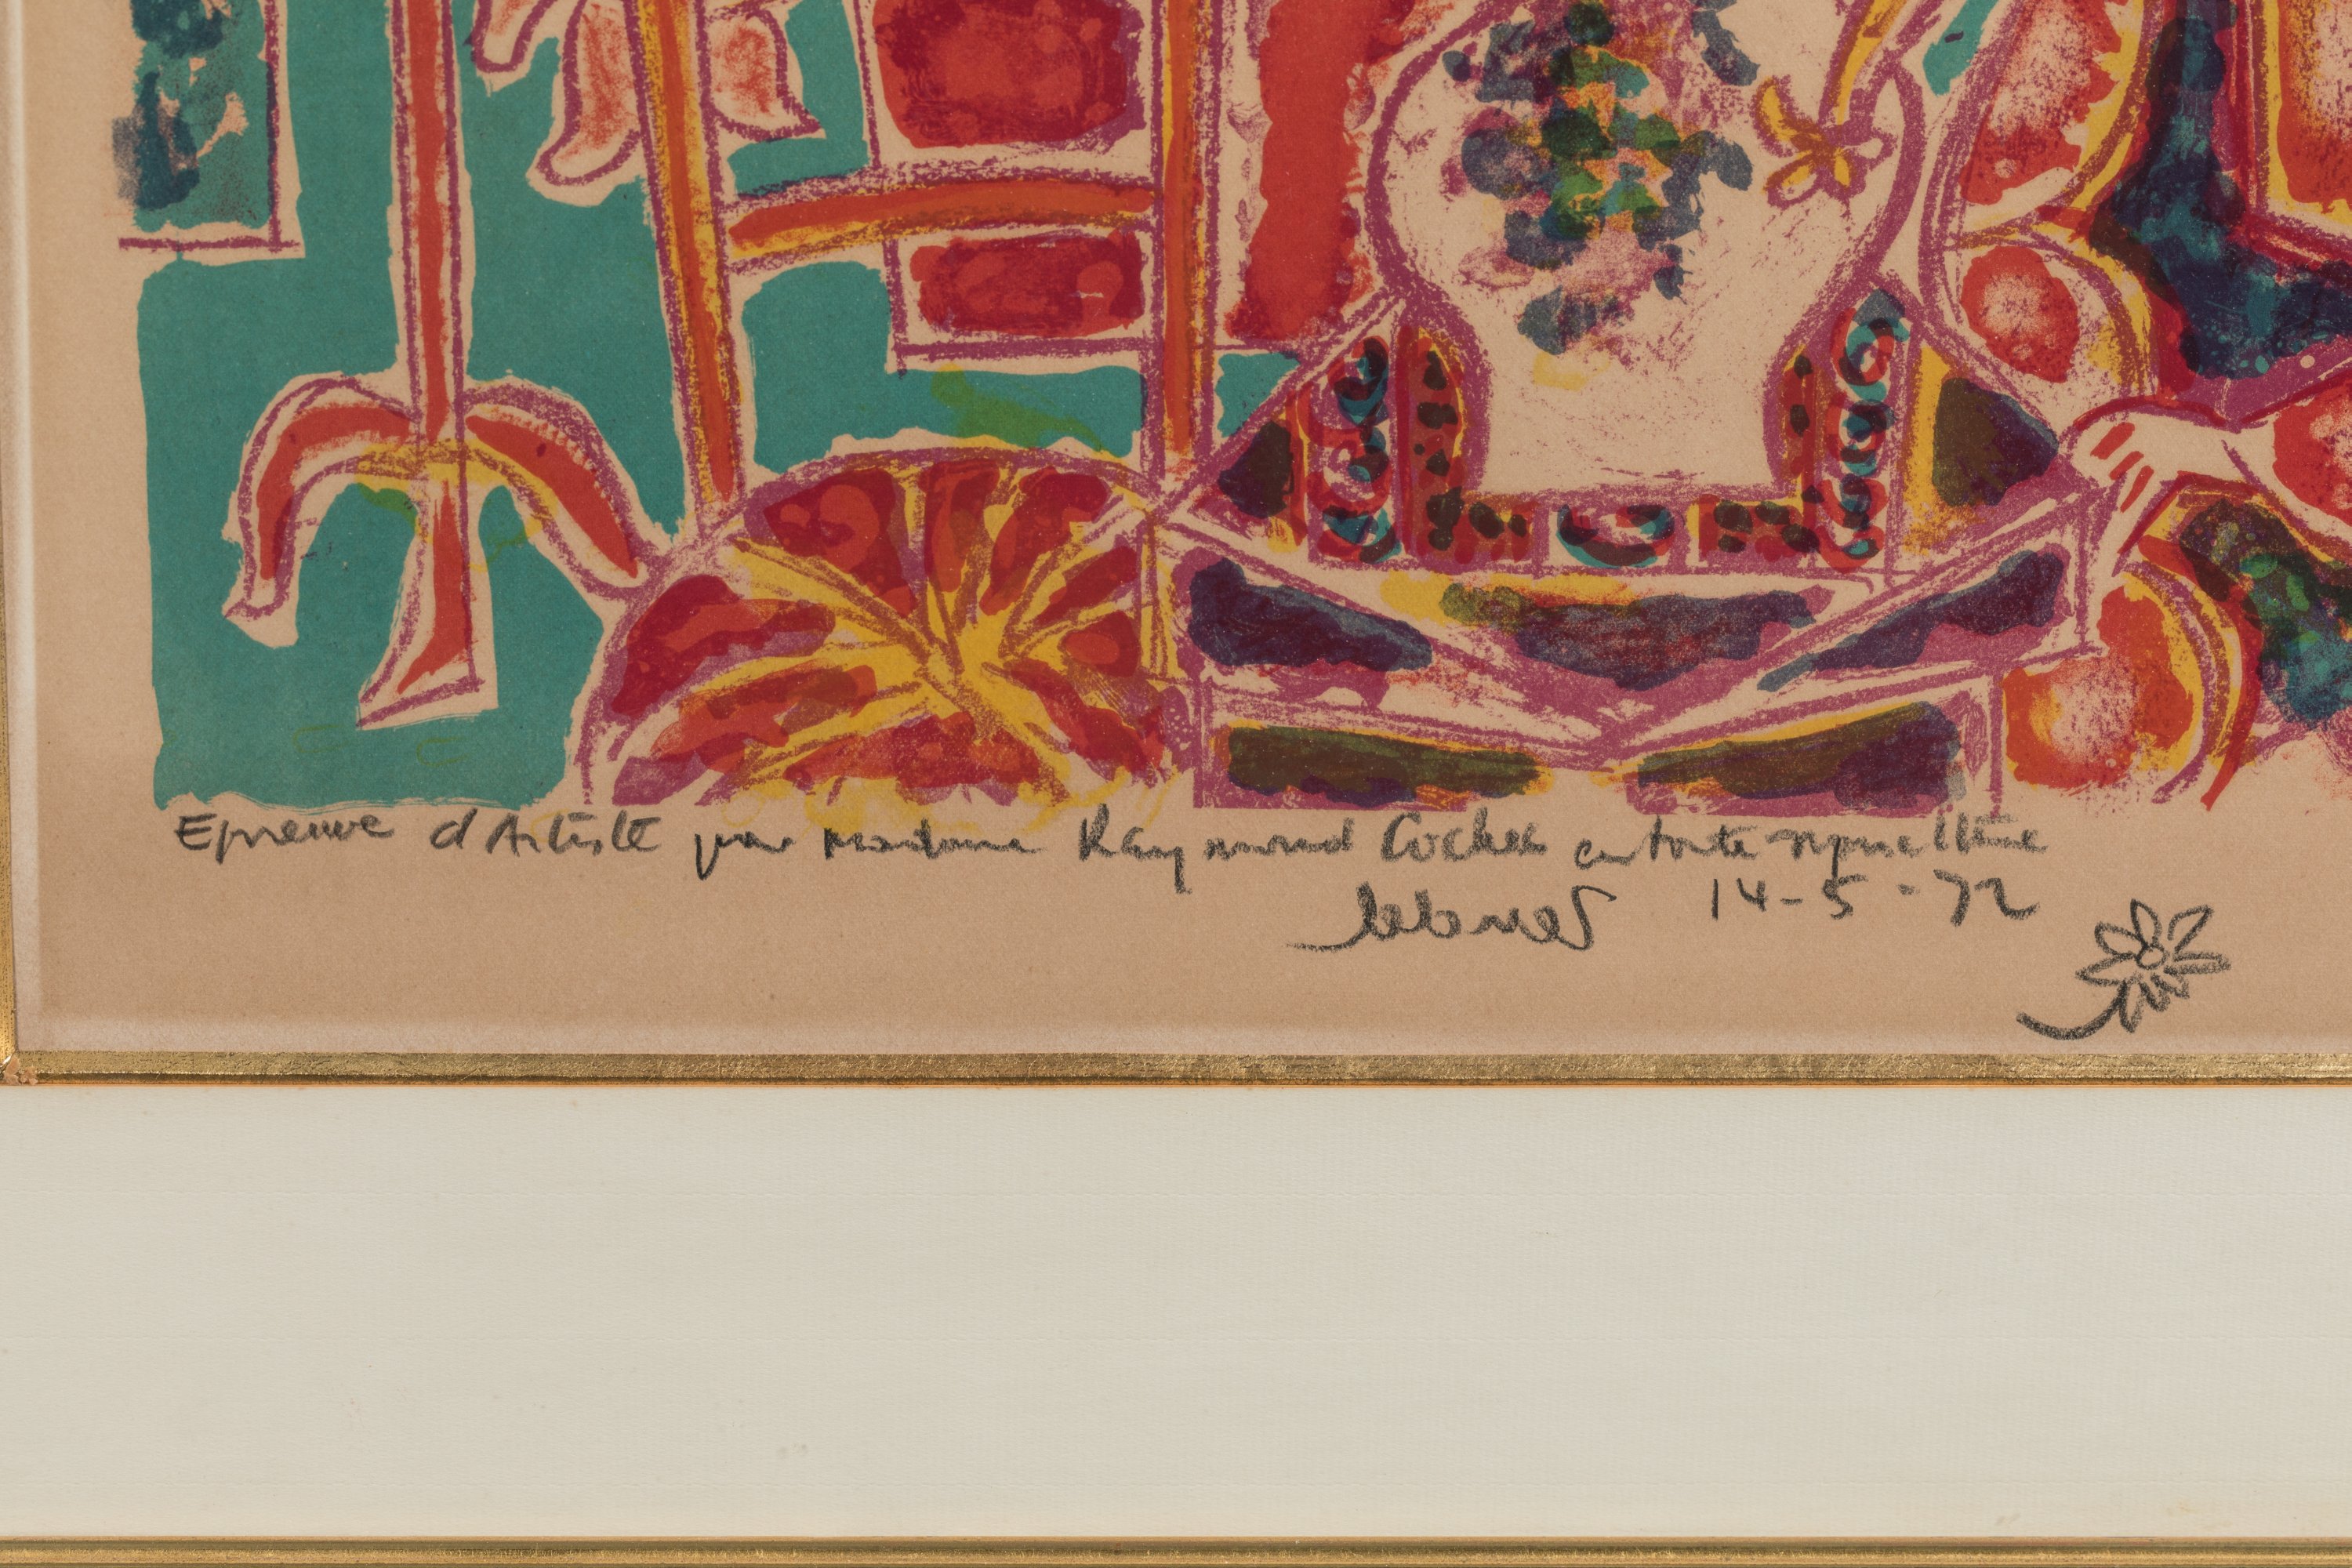 Epreuve d'Artiste pour Madame Raymond Cochet en toute sympathie
lebenet 14-5-72